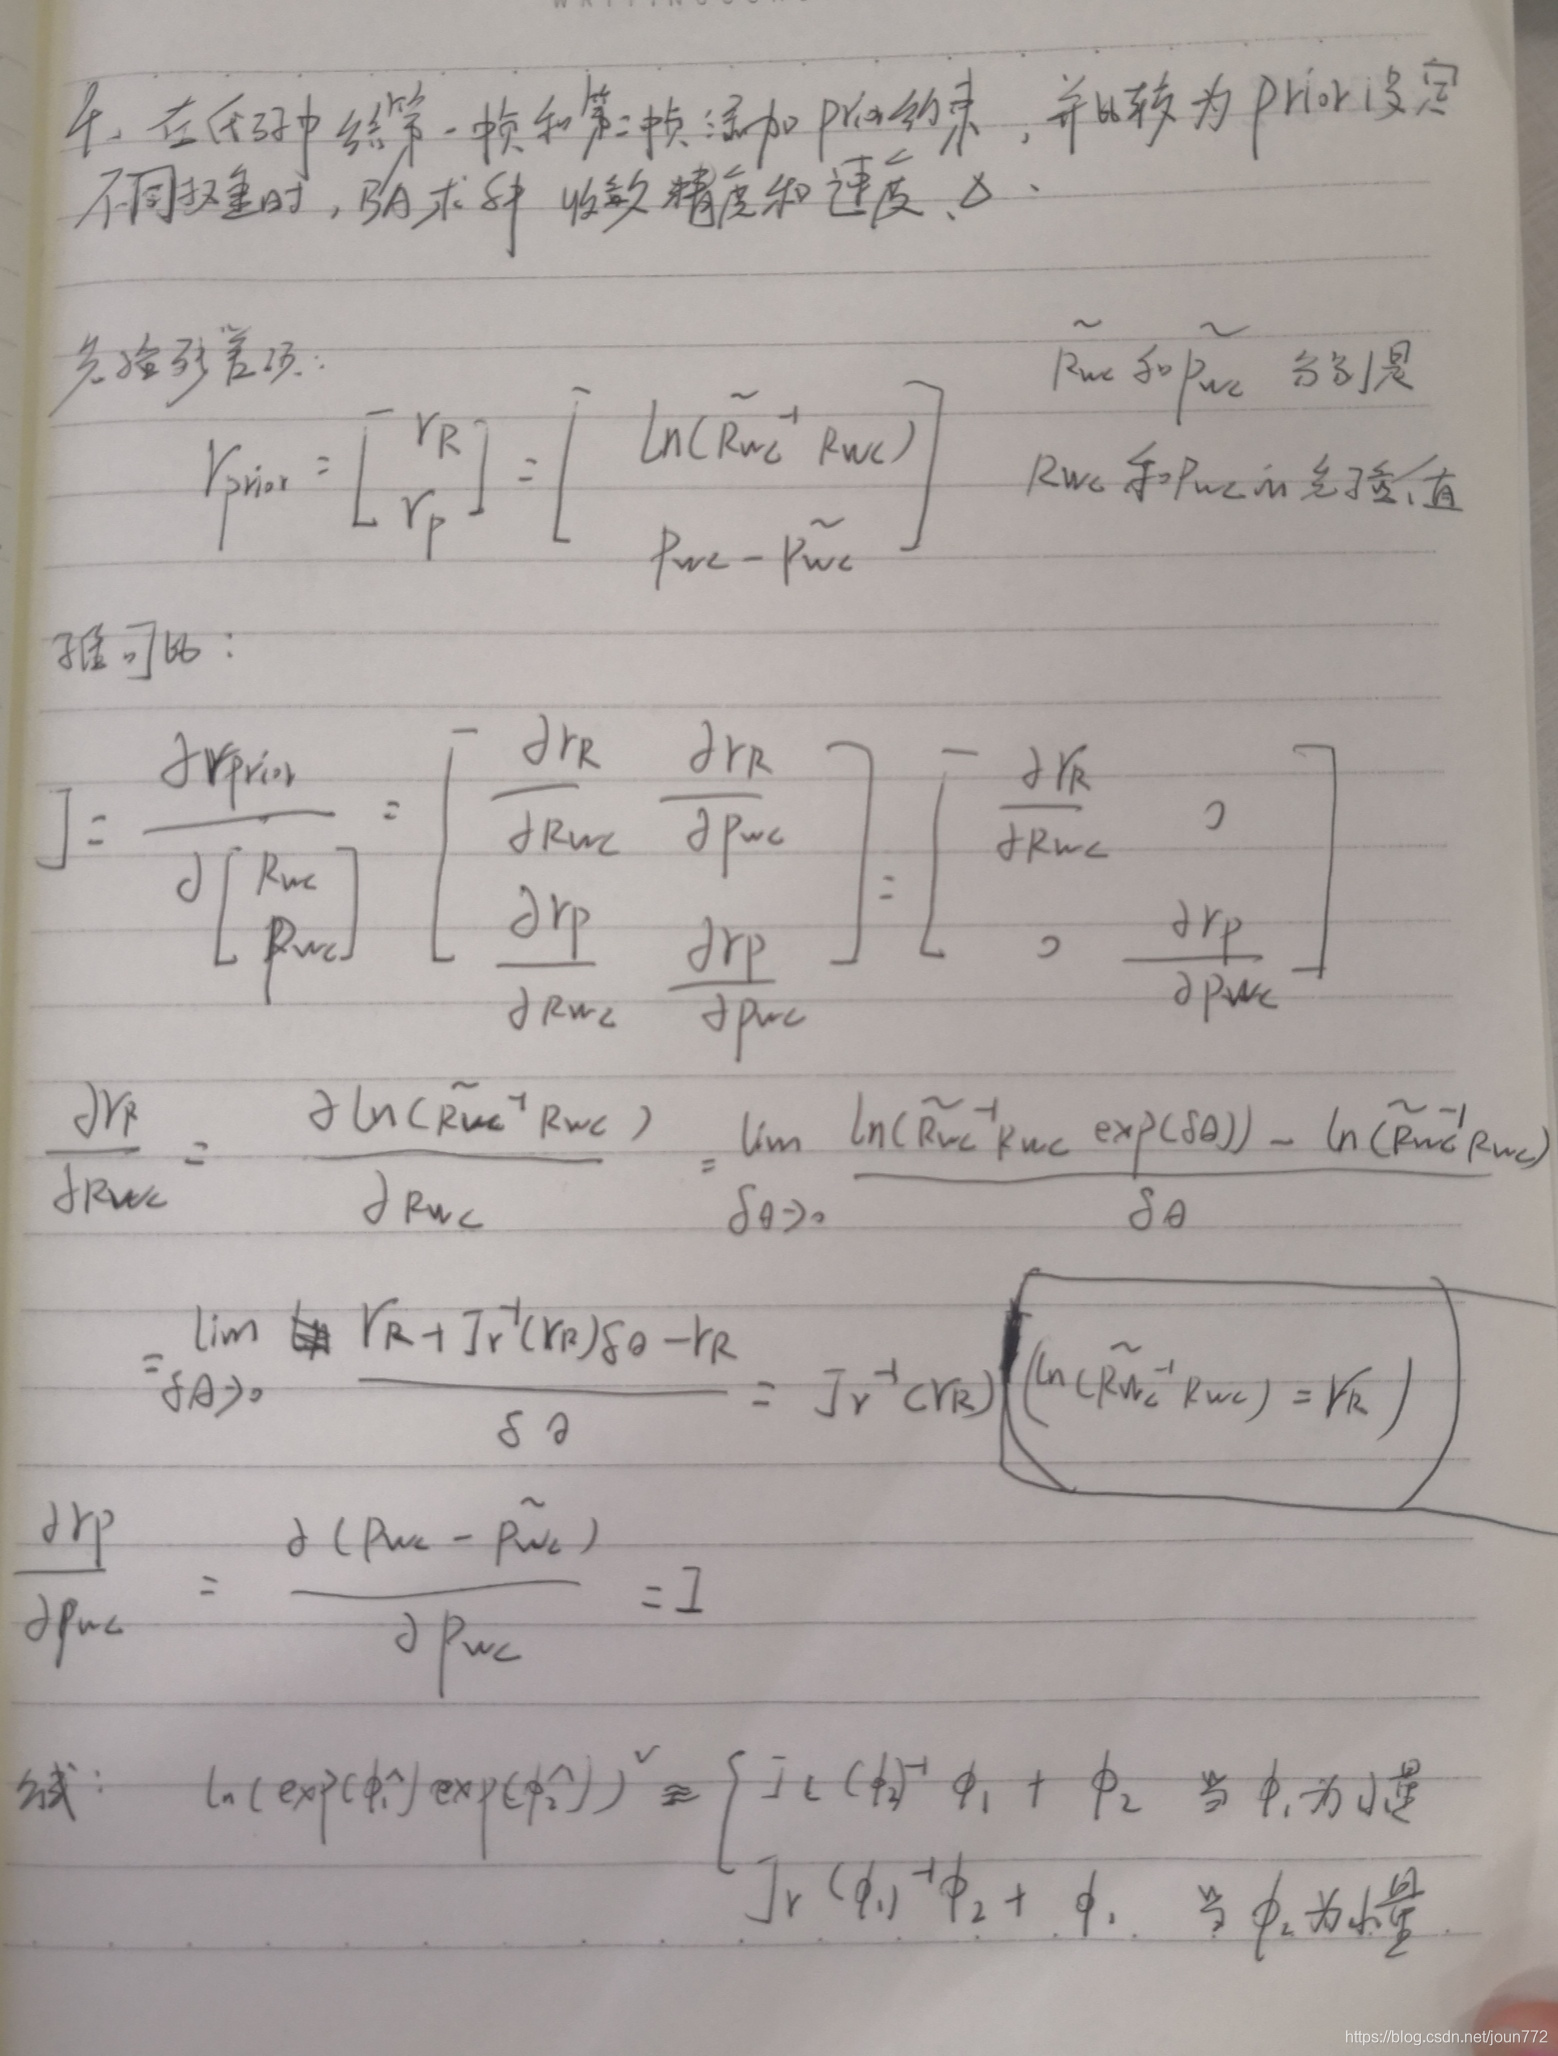 4、在代码中给第一帧和第二帧添加prior约束,并比较为prior设定
不同权重时,BA求解收敛精度和速度、
先验残差项:
r_prior = [r_R; r_p] = [ln(R̃wc⁻¹ Rwc); pwc - p̃wc]
R̃wc 和 p̃wc 分别是
Rwc 和 pwc 的先验值
雅可比:
J = ∂r_prior / ∂[Rwc; pwc] = [∂r_R/∂Rwc ∂r_R/∂pwc; ∂r_p/∂Rwc ∂r_p/∂pwc] = [∂r_R/∂Rwc 0; 0 ∂r_p/∂pwc]
∂r_R/∂Rwc = ∂ln(R̃wc⁻¹ Rwc) / ∂Rwc = lim δθ→0 (ln(R̃wc⁻¹ Rwc exp(δθ)) - ln(R̃wc⁻¹ Rwc)) / δθ
= lim δθ→0 (r_R + Jr⁻¹(r_R)δθ - r_R) / δθ = Jr⁻¹(r_R) (ln(R̃wc⁻¹ Rwc) = r_R)
∂r_p/∂pwc = ∂(pwc - p̃wc) / ∂pwc = I
公式: ln(exp(φ₁^)exp(φ₂^))ᵛ ≈ { J_L(φ₂)⁻¹ φ₁ + φ₂ 当φ₁为小量
Jr(φ₁)⁻¹ φ₂ + φ₁ 当φ₂为小量
https://blog.csdn.net/joun772